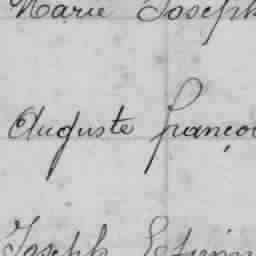 Marie Joseph
Auguste françoi
Joseph Etienn